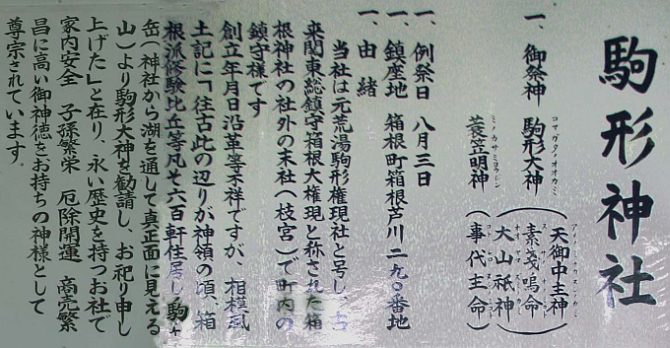 駒形神社
一、御祭神 駒形大神 天御中主神
素戔嗚命
大山祇神
蓑笠明神(事代主命)
一、例祭日 八月三日
一、鎮座地 箱根町箱根芦川二九〇番地
一、由緒
当社は元荒湯駒形権現社と号し、古
来関東総鎮守箱根大権現と称された箱
根神社の社外の末社(枝宮)で町内の
鎮守様です
創立年月日沿革等不詳ですが、相模風
土記に「往古此の辺りが神領の頃、箱
根派修験比丘等凡そ六百軒住居し、駒ヶ
岳(神社から湖を通して真正面に見える
山)より駒形大神を勧請し、お祀り申し
上げた」と在り、永い歴史を持つお社で
家内安全 子孫繁栄 厄除開運 商売繁
昌に高い御神徳をお持ちの神様として
尊宗されています。